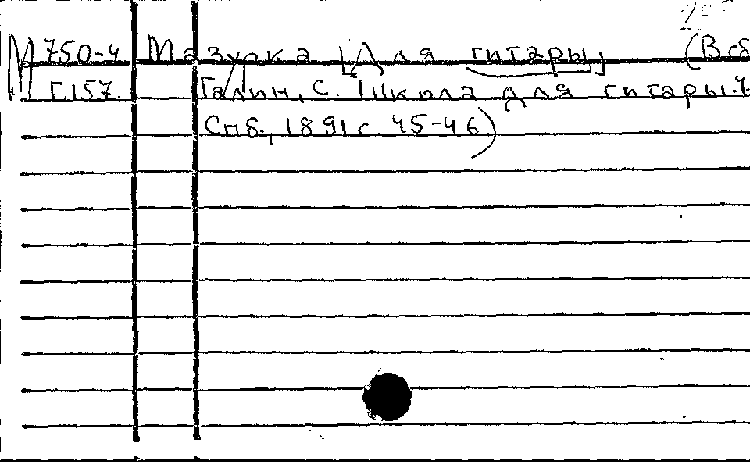 М 750-4 Мазурка [Для гитары] (В сб
Г157 Галин, С. Школа для гитары. Ч
Спб., 1891 с 45-46)